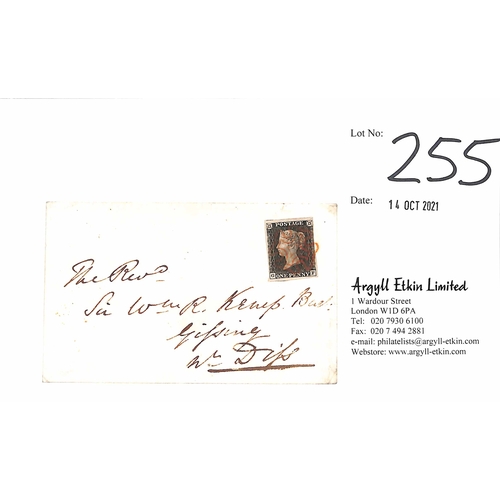 Lot No: 255
Date: 14 OCT 2021
POSTAGE
ONE PENNY
The Revd
Sir Wm R. Kemp Bart.
Gissing
Nr Diss
Argyll Etkin Limited
1 Wardour Street
London W1D 6PA
Tel: 020 7930 6100
Fax: 020 7 494 2881
e-mail: philatelists@argyll-etkin.com
Webstore: www.argyll-etkin.com